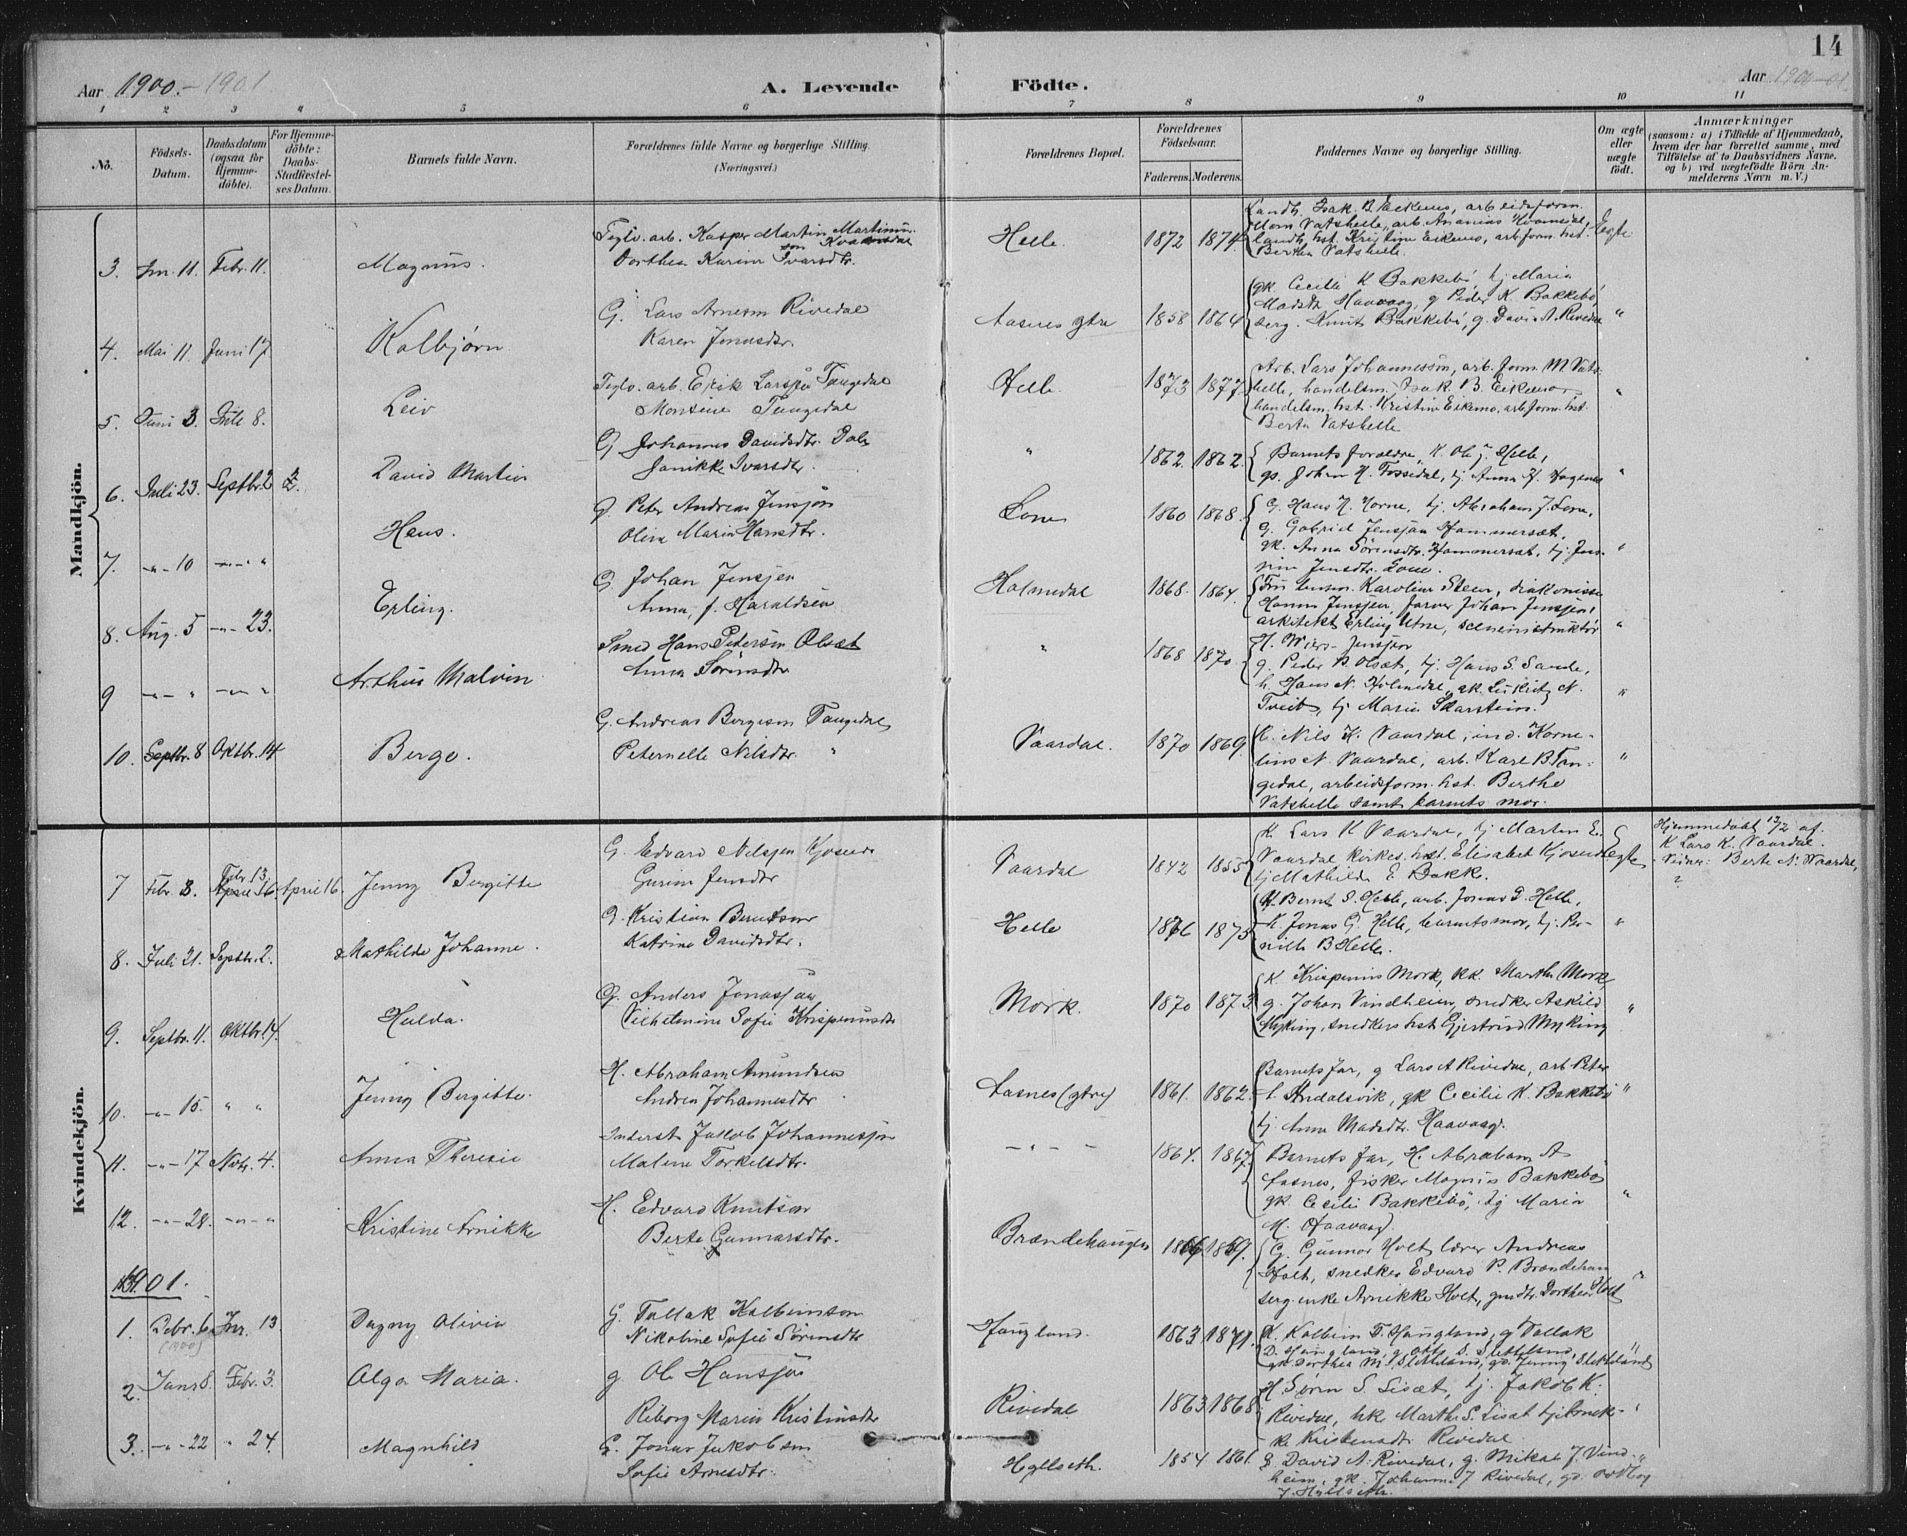 14
Aar 1900.-1901
A. Levende Födte.
Aar 1900-01.
1 2 3 4 5 6 7 8 9 10 11
No.
Födsels-Datum.
Daabsdatum (ogsaa for Hjemmedöbte).
For Hjemmedöbte: Daabs-Stadfæstelses Datum.
Barnets fulde Navn.
Forældrenes fulde Navne og borgerlige Stilling. (Næringsvei.)
Forældrenes Bopæl.
Forældrenes Födselsaar.
Faderens. Moderens.
Faddernes Navne og borgerlige Stilling.
Om ægte eller uægte födt.
Anmærkninger
(saasom: a) i Tilfælde af Hjemmedaab, hvem der har forrettet samme, med Tilföielse af to Daabsvidners Navne, og b) ved uægtefödte Börn Anmelderens Navn m. V.)
Mandkjön.
3. Jan. 11. Febr. 11. Magnus. Teglv. arb. Kasper Martin Martinusson Kvamsdal
Dorthea Karine Ivarsdtr.
Helle. 1872 1874
Landh. Isak B. Eikemo, arbeidsform.
Mons Vatshelle, arb. Ananias Kvamsdal,
landh. hst. Kristine Eikemo, arb.form. hst.
Bertha Vatshelle.
Ægte
4. Mai 11. Juni 17 Kolbjørn G. Lars Arneson Rivedal
Karen Jonasdtr.
Aasnes gtre 1858 1864
gk. Cecilie K Bakkebö, tj Maria
Madsdtr Haavaag, g Peder K. Bakkebö,
Knut Bakkebö, g. David A. Rivedal "
5. Juni 3. Juli 8. Leiv Teglv. arb. Erik Larsen Tangedal
Monsine Tangedal
Helle 1873 1877
Arb. Lars Johannesson, arb.form. M Vatshelle, handelsm. Isak. B. Eikemo,
handelsm. hst. Kristine Eikemo, arb.form. hst.
Berta Vatshelle "
6. Juli 23. Septbr. 2 David Martin G Johannes Davidsdtr. Dale
Janikke Ivarsdtr.
" 1862. 1862.
Barnets forældre, K. Ole J. Helle,
gs. Johan H. Fossedal, tj. Anna "
7. -"- 10 -"- " Hans. G Peter Andreas Jenssøn
Oline Marie Hansdtr.
Lone 1860 1868.
G. Hans H. Horne, tj. Abraham J. Lone,
G. Gabriel Jenssøn Hammersæt,
gk. Anna Sörensdtr. Hammersæt, tj. Jensine Jensdtr. Lone. "
8. Aug. 5 -"- 23. Erling. G Johan Jenssen
Anna, f. Haraldsen
Holmedal 1868. 1864.
Karoline Steen, diakonisse
Hanna Jenssen, farver Johan Jenssen,
arkitekt Erling Utne, sceneinstruktör
H. Wiers-Jenssen "
9 -"- " -"- " Arthur Malvin. Smed Hans Peterson Olset
Anna Sörensdtr
" 1868 1870
g. Peder P. Olsæt, tj. Hans S. Sande,
h. Hans N. Holmedal, gk. N.
Tveit, tj. Marie Skarstein. "
10. Septbr. 8 Oktbr. 14 Berge. G. Andreas Bergeson Tangedal
Peternelle Nilsdtr "
Vaardal. 1870 1869.
K. Nils K. Vaardal, ind. Kornelius N. Vaardal, arb. Karl B Tangedal, arbeidsform. hst. Berthe
Vatshelle samt barnets mor. "
Kvindekjön.
7 Febr. 8. Febr. 13 April 16 April 16. Jenny Bergitte G. Edvard Nilssen Kjosund
Gurine Jensdtr
Vaardal 1842 1855
K Lars K Vaardal, tj Martin E.
Vaardal, kirkes. hst. Elisabet Kjosund
tj Mathilde E Bakk.
Ægte
Hjemmedöbt 13/2 af
K Lars K. Vaardal.
Vidner: Berte N. Vaardal,
?
8. Juli 21. Septbr. 2. Mathilde Johanne. G. Kristian Berntson
Katrine Davidsdtr.
Helle 1876 1875
K. Bernt S. Helle, arb. Jonas G. Helle,
K Jonas G. Helle, barnets mor, tj. Pernille B Helle. "
9. Septbr. 11. Oktbr. 14. Hulda. G. Anders Jonassøn
Vilhelmine Sofie Krispinusdtr
Mork. 1870 1873
K. Krispinus Mork, kk. Marthe Mork
g. Johan Vindheim, snedker Askild
Myking, snedkers hst Gjertrud Myking "
10. -"- 15. " " Jenny Bergitte. H. Abraham Amundsen
Andrea Johannesdtr
Aasnes (gtre) 1861. 1862.
Barnets far, g Lars A Rivedal, arb. Peter
Andalsvik, gk Cecilie K. Bakkebö
tj. Anna Madsdtr. Haavaag. "
11. -"- 17 Novbr. 4. Anna Theresie Inderst Jakob Johannessøn
Malene Torkelsdtr.
- " - 1864. 1867.
Barnets far, H. Abraham A
Aasnes, fisker Magnus Bakkebö
gk. Cecilie Bakkebö, tj Maria
M. Haavaag. "
12. -"- 28. -"- " Kristine Arnikke H. Edvard Knutson
Berte Gunnarsdtr.
Brændehaugen 1866 1869.
G. Gunnar Holt, lærer Andreas
Holt, snedker Edvard P. Brændehaug
enke Arnikke Holt, gmdtr. Dorthea Holt "
1901.
1. Decbr. 6 (1900) Jan. 13 Dagny Olivia G Tallak Kolbeinson
Nikoline Sofie Sörensdtr
Haugland. 1863 1871.
K. Kolbein T. Haugland, g Tallak
D. Haugland, g. Otto S. Sletteland,
gk Dorthea M. Sletteland, gd. Jenny Sletteland "
2. Jan. 8. Febr. 3. Olga Maria. g Ole Hanssøn
Reborg Marie Kristensdtr
Rivedal 1863 1868
H Sören S. Lisæt, tj. Jakob K.
Rivedal, hke Marthe S. Lisæt
Kristensdtr Rivedal. "
3. -"- 22 " 24. Magnhild G. Jonas Jakobson
Sofie Arnesdtr.
Hyllseth. 1854 1861.
G David A. Rivedal, g. Mikal J. Vindheim, gk. Johanne J Rivedal, gd. Oddlaug
J. Hyllseth. "